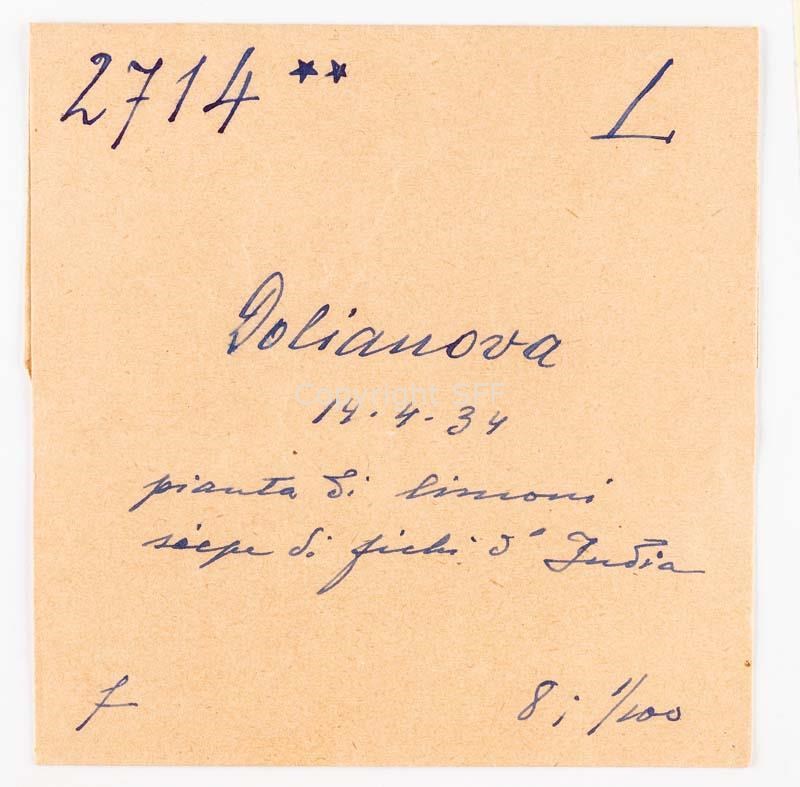 2714 ** L
Dolianova
Copyright SFF
14.4.34
pianta di limoni
siepe di fichi d'India
f 8; 1/100